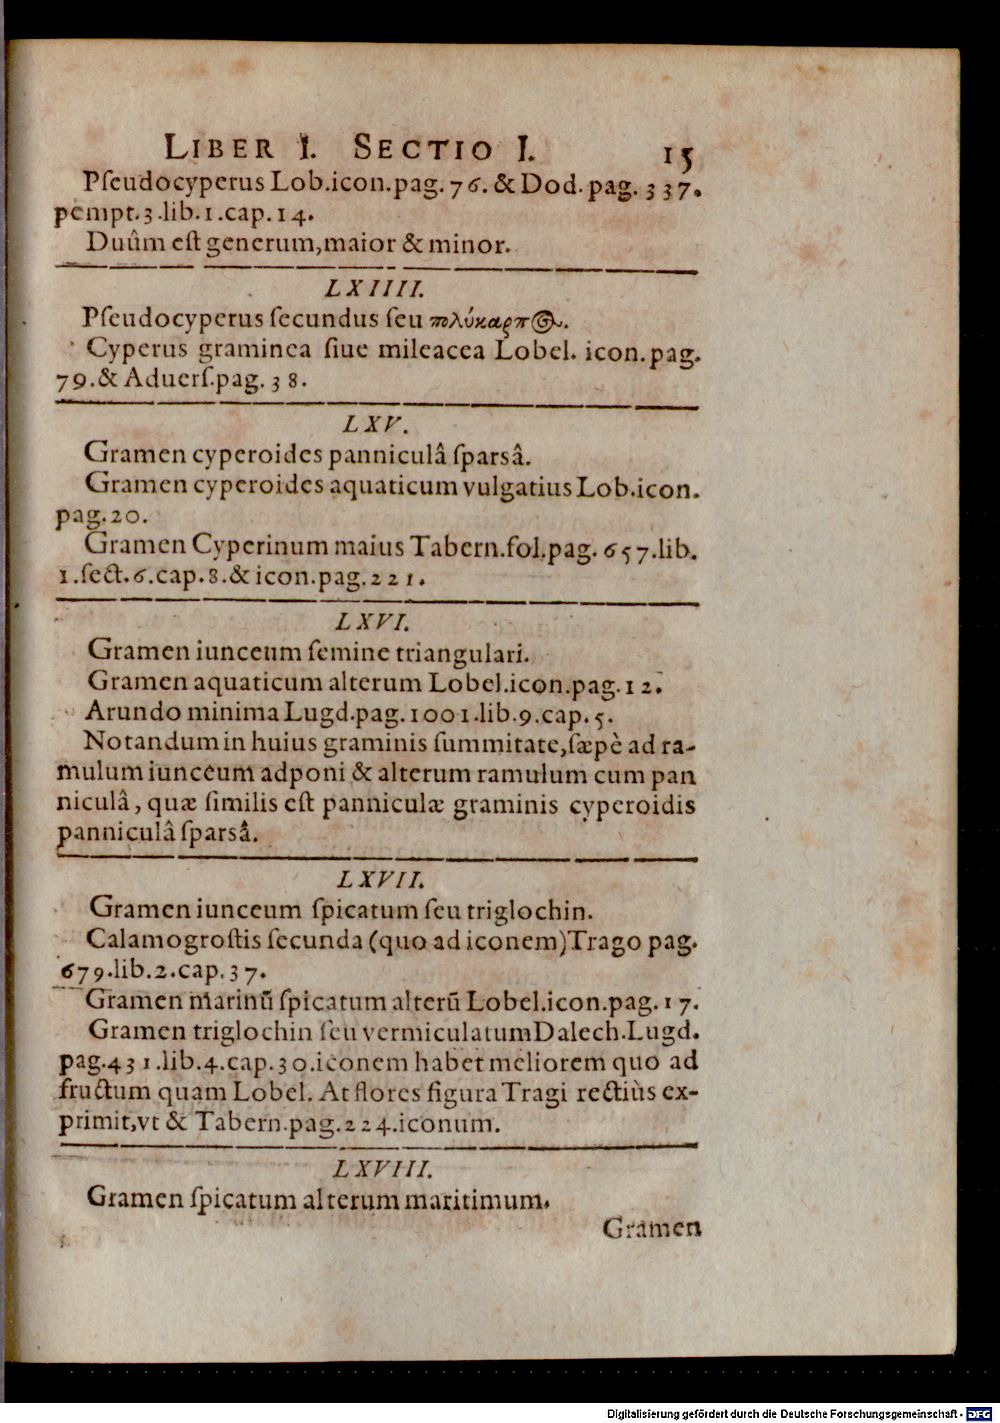 LIBER I. SECTIO I. 15
Pſeudocyperus Lob.icon.pag.76.& Dod.pag.337.
pempt.3.lib.1.cap.14.
Duûm eſt generum,maior & minor.
LXIIII.
Pſeudocyperus ſecundus ſeu πολύκαρπος.
Cyperus graminea ſiue mileacea Lobel. icon.pag.
79.& Aduerſ.pag.38.
LXV.
Gramen cyperoides panniculâ ſparsâ.
Gramen cyperoides aquaticum vulgatius Lob.icon.
pag.20.
Gramen Cyperinum maius Tabern.fol.pag.657.lib.
1.ſect.6.cap.8.& icon.pag.221.
LXVI.
Gramen iunceum ſemine triangulari.
Gramen aquaticum alterum Lobel.icon.pag.12.
Arundo minima Lugd.pag.1001.lib.9.cap.5.
Notandum in huius graminis ſummitate,ſæpè ad ra-
mulum iunceum adponi & alterum ramulum cum pan
niculâ, quæ ſimilis eſt panniculæ graminis cyperoidis
panniculâ ſparsâ.
LXVII.
Gramen iunceum ſpicatum ſeu triglochin.
Calamogroſtis ſecunda (quo ad iconem)Trago pag.
679.lib.2.cap.37.
Gramen marinū ſpicatum alterū Lobel.icon.pag.17.
Gramen triglochin ſeu vermiculatum Dalech.Lugd.
pag.431.lib.4.cap.30.iconem habet meliorem quo ad
fructum quam Lobel. At flores figura Tragi rectiùs ex-
primit,vt & Tabern.pag.224.iconum.
LXVIII.
Gramen ſpicatum alterum maritimum.
Gramen
Digitalisierung gefördert durch die Deutsche Forschungsgemeinschaft - DFG